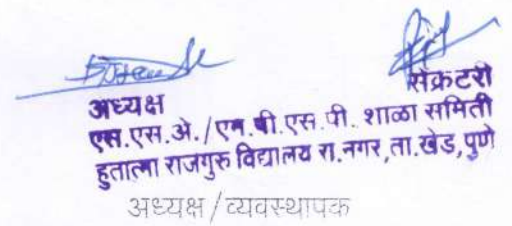 सेक्रटरी
अध्यक्ष
एस.एस.अे./एम.बी.एस.पी. शाळा समिती
हुतात्मा राजगुरु विद्यालय रा.नगर,ता.खेड,पुणे
अध्यक्ष/व्यवस्थापक